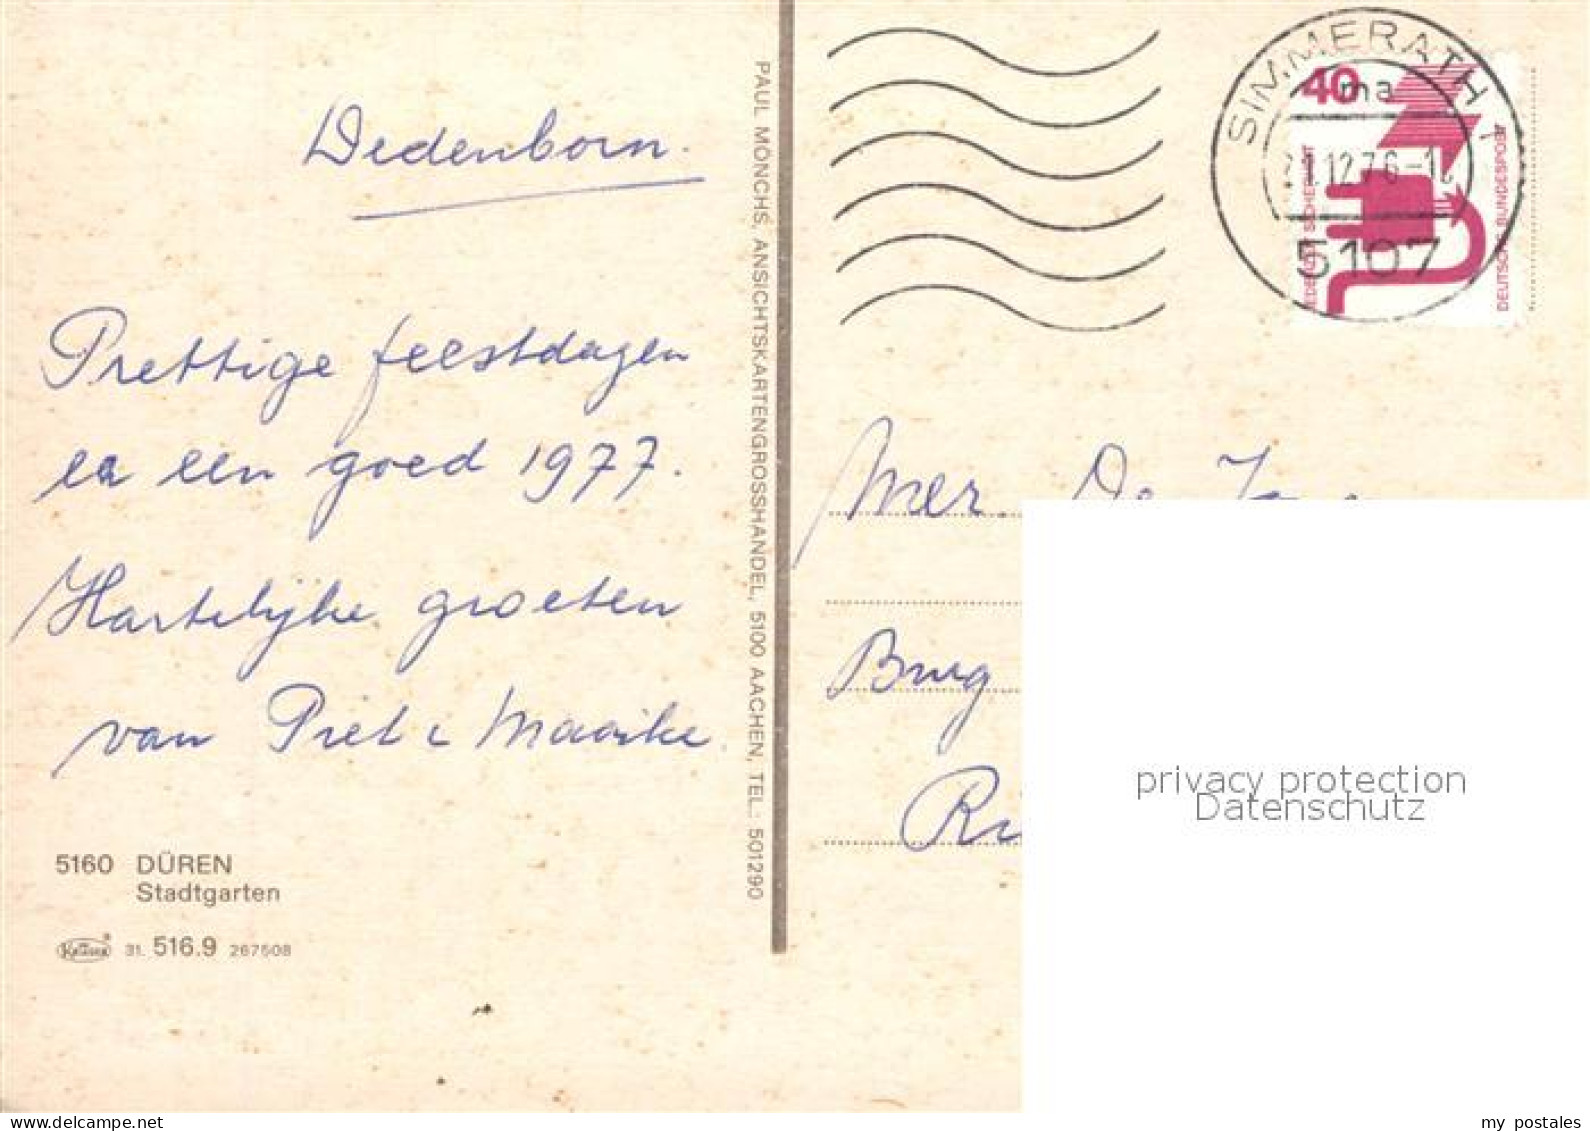 Dedenborn.
Prettige feestdagen
en een goed 1977.
Hartelijke groeten
van Piet & Maaike
5160 DÜREN
Stadtgarten
31. 516.9 267508
PAUL MÖNCHS, ANSICHTSKARTENGROSSHANDEL, 5100 AACHEN, TEL.: 501290
SIMMERATH 1
ma
12.76-1
5107
40
JEDERZEIT SICHERHEIT
DEUTSCHE BUNDESPOST
Mer. De
Burg
privacy protection
Datenschutz
www.delcampe.net
my_postales